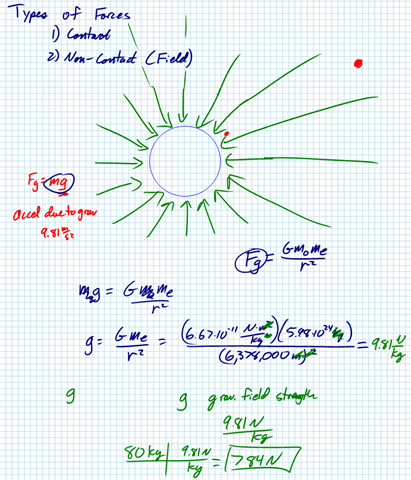 Types of Forces
1) Contact
2) Non-Contact (Field)
Fg = mg
Accel due to grav
9.81 m/s²
Fg = G m₀ me / r²
m₀g = G m₀ me / r²
g = G me / r² = (6.67·10⁻¹¹ N·m²/kg²)(5.98·10²⁴ kg) / (6,378,000 m)² = 9.81 N/kg
g g grav. field strength
9.81 N/kg
80 kg | 9.81 N/kg = 784 N